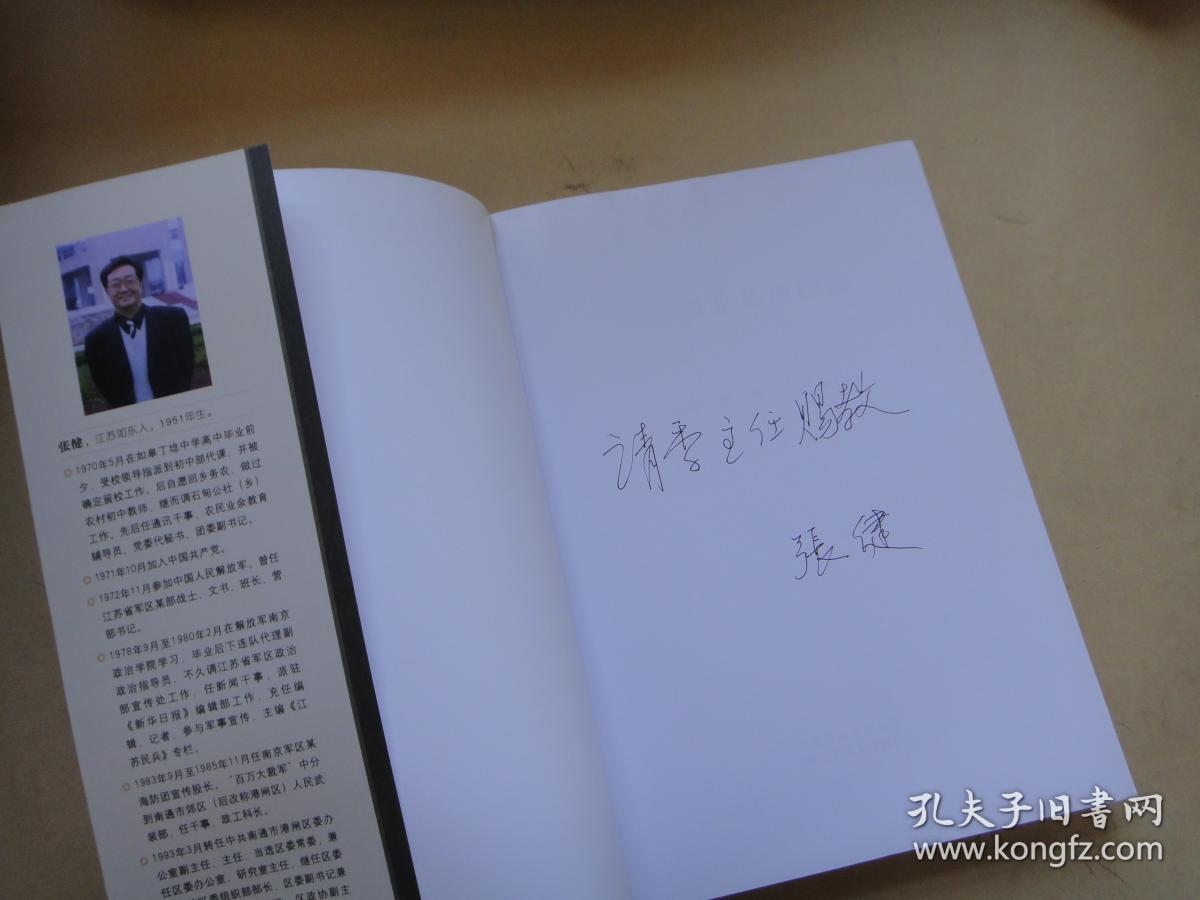 张健，江苏如东人，1951年生。
1970年5月在如皋丁埝中学高中毕业前
夕，受校领导指派到初中部代课，并被
确定留校工作。后自愿回乡务农，做过
农村初中教师，继而调石甸公社（乡）
工作。先后任通讯干事、农民业余教育
辅导员、党委代秘书、团委副书记。
1971年10月加入中国共产党。
1972年11月参加中国人民解放军。曾任
江苏省军区某部战士、文书、班长、营
部书记。
1978年9月至1980年2月在解放军南京
政治学院学习，毕业后下连队代理副
政治指导员，不久调江苏省军区政治
部宣传处工作，任新闻干事，派驻
《新华日报》编辑部工作，充任编
辑、记者，参与军事宣传，主编《江
苏民兵》专栏。
1983年9月至1985年11月任南京军区某
海防团宣传股长。“百万大裁军”中分
到南通市郊区（后改称港闸区）人民武
装部，任干事、政工科长。
1993年3月转任中共南通市港闸区委办
公室副主任、主任，当选区委常委，兼
任区委办公室、研究室主任，继任区委
区委组织部部长、区委副书记兼
区政协副主
请季主任赐教
張健
孔夫子旧書网
www.kongfz.com